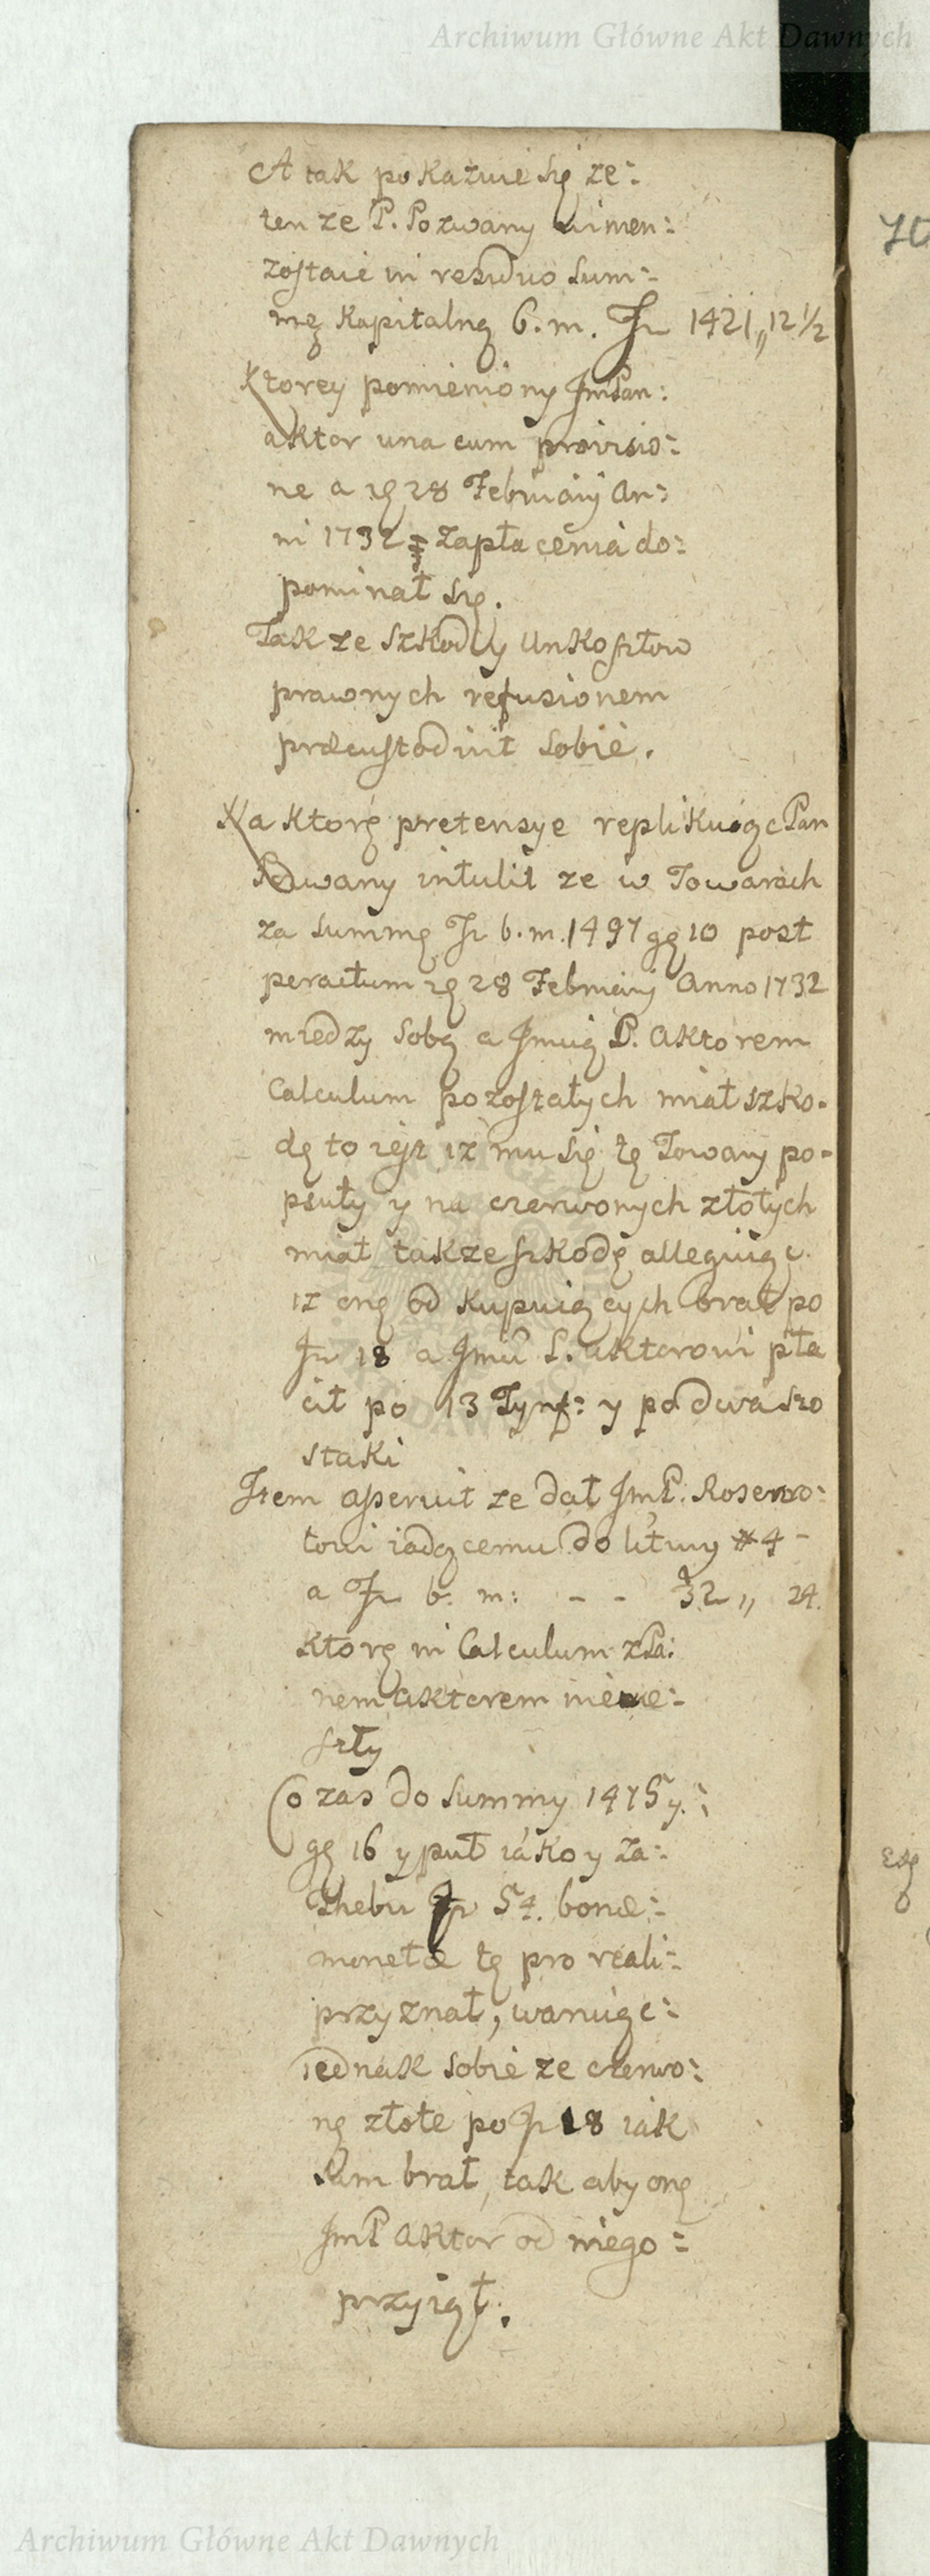 Archiwum Główne Akt Dawnych
A tak pokazuie się ze:
ten ze P. Pozwany winien:
zostaie in residuo Sum:
mę Kapitalną b. m. Fr 1421,, 12 1/2
Ktorey pomieniony ImPan:
aktor una cum provisio:
ne a 28 Februarij An:
ni 1732 zapłacenia do:
pominał się.
Takze szkody Unkosztow
prawnych refusionem
præcustodiuit sobie.
Na ktorę pretensye replikuiąc Pan
Pozwany intulit ze w Towarach
za summę Fr b. m. 1497 gę 10 post
peractum 28 Februarij Anno 1732
miedzy sobą a Jmcią P. Aktorem
Calculum pozostałych miał szko-
dę to iest iz mu się tę Towary po-
psuły y na czerwonych złotych
miał takze szkodę alleguiąc
iz onę od kupuiących brał po
Fr 18 a Jmci P. Aktorowi pła
cił po 13 Tynf: y po dwa szo
staki
Item asseruit ze dał ImP. Rosenwo:
towi iadącemu do Litwy # 4 -
a Fr b. m: - - 32,, 24.
ktorę in Calculum z Pa:
nem Aktorem nie we:
szły
Co zas do Summy 1475 y:
gę 16 y puł iako y za:
Thebu Fr 54. bonæ:
monetæ tę pro reali:
przyznał, waruiąc:
iednak sobie ze czerwo:
nę złote po Fr 18 iak
sam brał, tak aby onę
ImP Aktor od niego:
przyiął.
Archiwum Główne Akt Dawnych